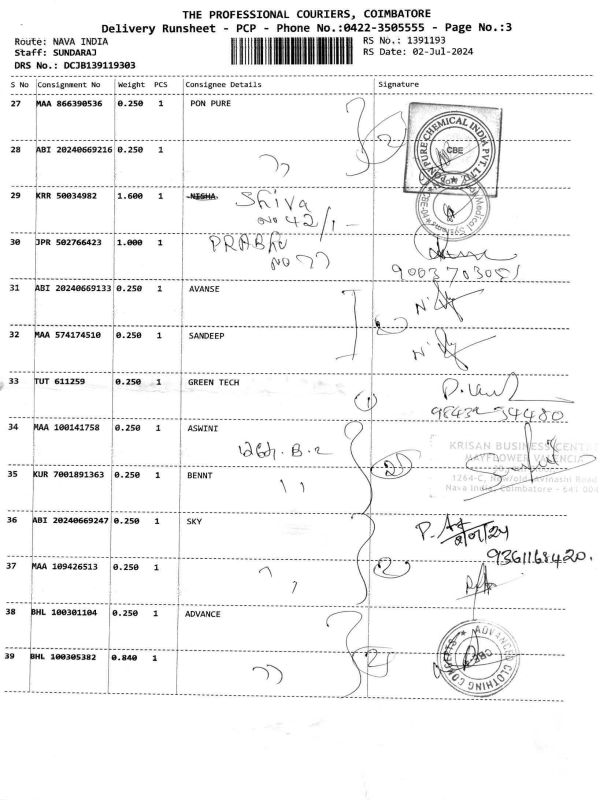 THE PROFESSIONAL COURIERS, COIMBATORE
Delivery Runsheet - PCP - Phone No.:0422-3505555 - Page No.:3
Route: NAVA INDIA RS No.: 1391193
Staff: SUNDARAJ RS Date: 02-Jul-2024
DRS No.: DCJB139119303
S No Consignment No Weight PCS Consignee Details Signature
27 MAA 866390536 0.250 1 PON PURE
PON PURE CHEMICAL INDIA PVT. LTD
CBE
28 ABI 20240669216 0.250 1
29 KRR 50034982 1.600 1 NISHA Shiva
No 42/1
Medical Systems
30 JPR 502766423 1.000 1 PRABHU
No
9003703051
31 ABI 20240669133 0.250 1 AVANSE
32 MAA 574174510 0.250 1 SANDEEP
33 TUT 611259 0.250 1 GREEN TECH
1
98432 34480
34 MAA 100141758 0.250 1 ASWINI
KRISAN BUSINESS CENTRE
MAYFLOWER VALENCIA
1264-C, New/old Avinashi Road
Nava India, Coimbatore - 641 004
35 KUR 7001891363 0.250 1 BENNT
2
36 ABI 20240669247 0.250 1 SKY
9361168420.
37 MAA 109426513 0.250 1
2
38 BHL 100301104 0.250 1 ADVANCE
ADVANCED CLOTHING CONCEPTS
CBE
39 BHL 100305382 0.840 1
2